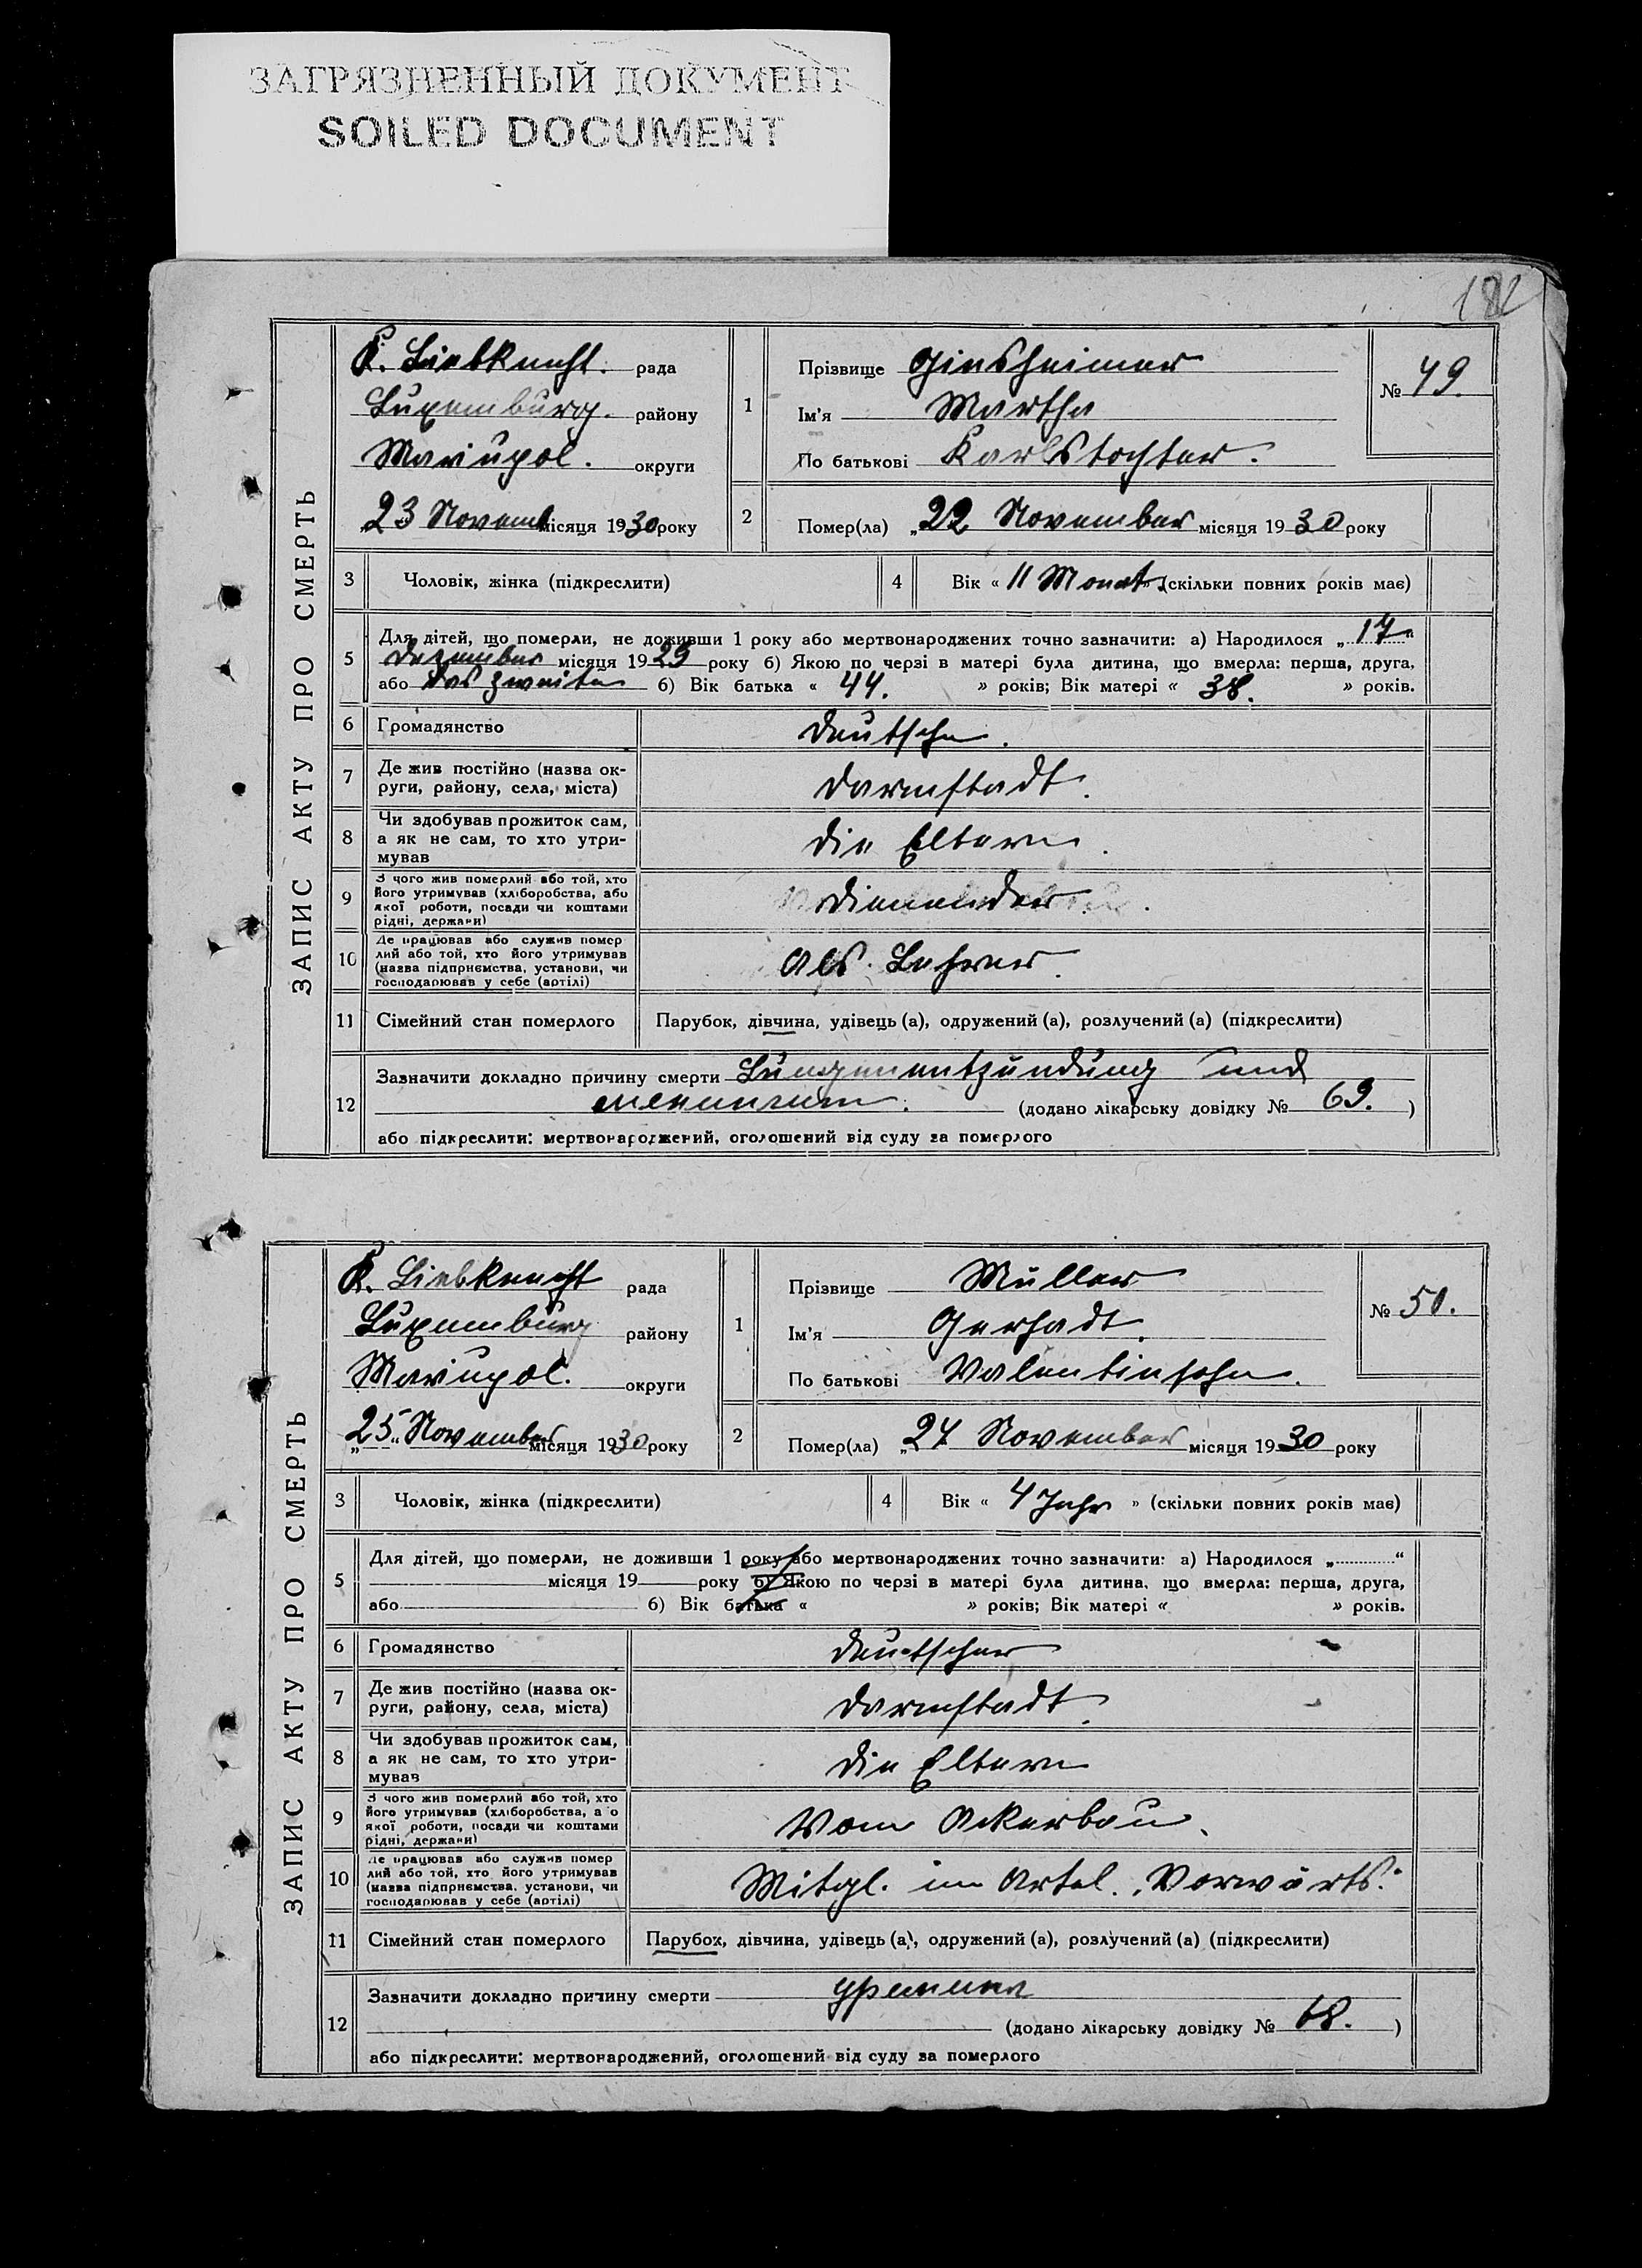 ЗАГРЯЗНЕННЫЙ ДОКУМЕНТ
SOILED DOCUMENT
182
ЗАПИС АКТУ ПРО СМЕРТЬ
K. Liebknecht. рада
Luxemburg. району
Mariupol. округи
„23 Novemb місяця 1930 року
1
Прізвище Ginsheimer
Ім'я Martha
По батькові Karlstochter.
№ 49.
2
Помер(ла) „22 November місяця 1930 року
3 Чоловік, жінка (підкреслити)
4 Вік « 11 Monat » (скільки повних років має)
5 Для дітей, що померли, не доживши 1 року або мертвонароджених точно зазначити: а) Народилося „17“
Dezember місяця 1929 року б) Якою по черзі в матері була дитина, що вмерла: перша, друга,
або das zweite б) Вік батька « 44. » років; Вік матері « 38. » років.
6 Громадянство Deutsche.
7 Де жив постійно (назва ок-
руги, району, села, міста) Darmstadt.
8 Чи здобував прожиток сам,
а як не сам, то хто утри-
мував die Eltern.
9 З чого жив померлий або той, хто
його утримував (хліборобства, або
якої роботи, посади чи коштами
рідні, держави)
10 Де працював або служив помер
лий або той, хто його утримував
(назва підприємства, установи, чи
господарював у себе (артілі) Als Lehrer.
11 Сімейний стан померлого Парубок, дівчина, удівець (а), одружений (а), розлучений (а) (підкреслити)
12 Зазначити докладно причину смерти Lungenentzündung und
(додано лікарську довідку № 69. )
або підкреслити: мертвонароджений, оголошений від суду за померлого
ЗАПИС АКТУ ПРО СМЕРТЬ
K. Liebknecht рада
Luxemburg району
Mariupol. округи
„25“ November місяця 1930 року
1
Прізвище Müller
Ім'я Gerhadt.
По батькові Valentinsohn.
№ 50.
2
Помер(ла) „24 November місяця 1930 року
3 Чоловік, жінка (підкреслити)
4 Вік « 4 Jahr » (скільки повних років має)
5 Для дітей, що померли, не доживши 1 року або мертвонароджених точно зазначити: а) Народилося „ “
місяця 19 року б) Якою по черзі в матері була дитина, що вмерла: перша, друга,
або б) Вік батька « » років; Вік матері « » років.
6 Громадянство Deutscher
7 Де жив постійно (назва ок-
руги, району, села, міста) Darmstadt.
8 Чи здобував прожиток сам,
а як не сам, то хто утри-
мував die Eltern
9 З чого жив померлий або той, хто
його утримував (хліборобства, а о
якої роботи, посади чи коштами
рідні, держави) Vom Ackerbau.
10 Де працював або служив помер
лий або той, хто його утримував
(назва підприємства, установи, чи
господарював у себе (артілі) Mitgl. im Artel. „Vorwärts."
11 Сімейний стан померлого Парубок, дівчина, удівець (а), одружений (а), розлучений (а) (підкреслити)
12 Зазначити докладно причину смерти уремия
(додано лікарську довідку № 68. )
або підкреслити: мертвонароджений, оголошений від суду за померлого